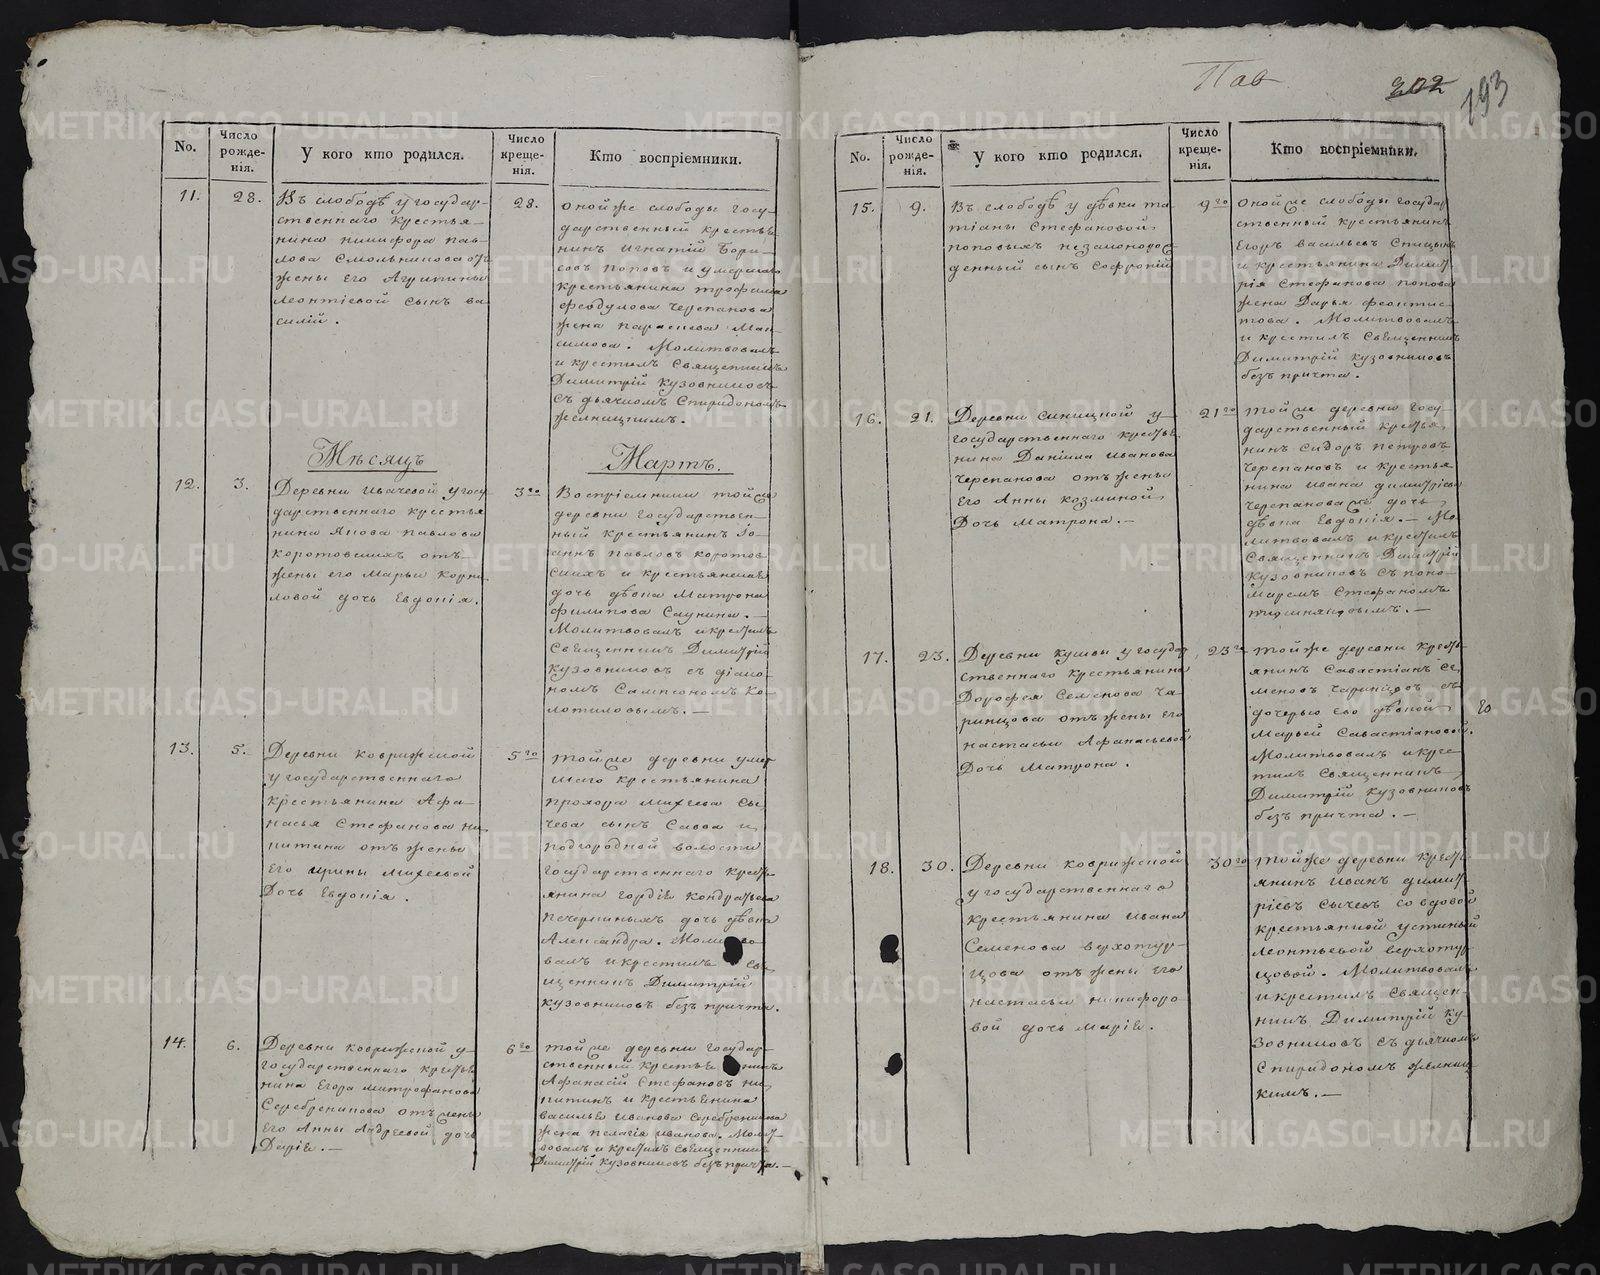 Пав
202
193
No.
Число рожде-нія.
У кого кто родился.
Число креще-нія.
Кто воспріемники.
11.
28.
Въ слободѣ у государ-
ственнаго крестья-
нина никифора пав-
лова Смольникова отъ
жены Его Агрипины
леонтіевой сынъ ва
силій.
28.
оной же слободы госу-
дарственный крестья
нинъ игнатій Бори-
совъ поповъ и умершаго
крестьянина трофима
феодулова Черепанова
жена параскева Мак-
симова. Молитвовалъ
и крестилъ Священникъ
Димитрій кузовниковъ
съ дьячкомъ Спиридономъ
желницкимъ.
Мѣсяцъ
Мартъ.
12.
3.
Деревни ивачевой у госу
дарственнаго крестья
нина Якова павлова
коротовскихъ отъ
жены его Марьи корни
ловой дочь Евдокія.
3го
Воспріемники той же
деревни государствен-
ный крестьянинъ Іо-
аннъ павловъ коротов
скихъ и крестьянина
дочь дѣвка Матрона
филипова Саунина.—
Молитвовалъ и крестилъ
Священникъ Димитрій
кузовниковъ съ діако-
номъ Сампсономъ ко-
лотиловымъ.—
13.
5.
Деревни ковриженой
у государственнаго
крестьянина Афа-
насья Стефанова ни
китина отъ жены
Его ирины михеевой
Дочь Евдокія.
5го
той же деревни умер
шаго крестьянина
прохора михеева сы
чева сынъ Савва и
подгородной волости
государственнаго кресть
янина гордѣя кондратьева
печеркиныхъ дочь дѣвка
Александра. Молитво
валъ и крестилъ Свя
щенникъ Димитрій
кузовниковъ безъ причта.
14.
6.
Деревни ковриженой у
государственнаго крестья
нина Егора митрофанова
Серебреникова отъ жены
Его Анны Андреевой дочь
Дарія.—
6го
той же деревни государ-
ственный крестьянинъ
Афанасій Стефановъ ни
китинъ и крестьянина
василья иванова Серебреникова
жена пелагія иванова. Молит
вовалъ и крестилъ Священникъ
Димитрій кузовниковъ безъ причта.—
No.
Число рожде-нія.
У кого кто родился.
Число креще-нія.
Кто воспріемники.
15.
9.
Въ слободѣ у дѣвки та
тіаны Стефановой
поповыхъ незаконорож
денный сынъ Софроній
9го
оной же слободы государ
ственный крестьянинъ
Егоръ васильевъ Спицынъ
и крестьянина Димит
рія Стефанова попова
жена Дарья феоктис
това. Молитвовалъ
и крестилъ Священникъ
Димитрій кузовниковъ
безъ причта.
16.
21.
Деревни синицной у
государственнаго крестья
нина Даніила иванова
Черепанова отъ жены
Его Анны козминой
Дочь Матрона.—
21го
той же деревни госу-
дарственный крестья
нинъ сидоръ петровъ
Черепановъ и крестья
нина ивана димитріева
Черепанова же дочь
дѣвка Евдокія.— Мо
литвовалъ и крестилъ
Священникъ Димитрій
кузовниковъ съ поно-
маремъ Стефаномъ
17.
23.
Деревни кушвы у государ
ственнаго крестьянина
Дорофея Семенова ча-
ринцова отъ жены его
настасьи Афанасьевой
Дочь Матрона.
23го
той же деревни кресть
янинъ Савастіанъ Се
меновъ чаринцовъ съ
дочерью Ево дѣвкой
Марьей Савастіановой.
Молитвовалъ и кре
тилъ Священникъ
Димитрій кузовниковъ
безъ причта.—
18.
30.
Деревни ковриженой
у государственнаго
крестьянина ивана
Семенова верхотур-
цова отъ жены его
настасьи никифоро
вой дочь марія.
30го
той же деревни кресть
янинъ иванъ димит
ріевъ сычевъ со вдовой
крестьянкой устиньей
леонтьевой верхотур
цовой. Молитвовалъ
и крестилъ Священ-
никъ Димитрій ку
зовниковъ съ дьячкомъ
Спиридономъ желниц
кимъ.—